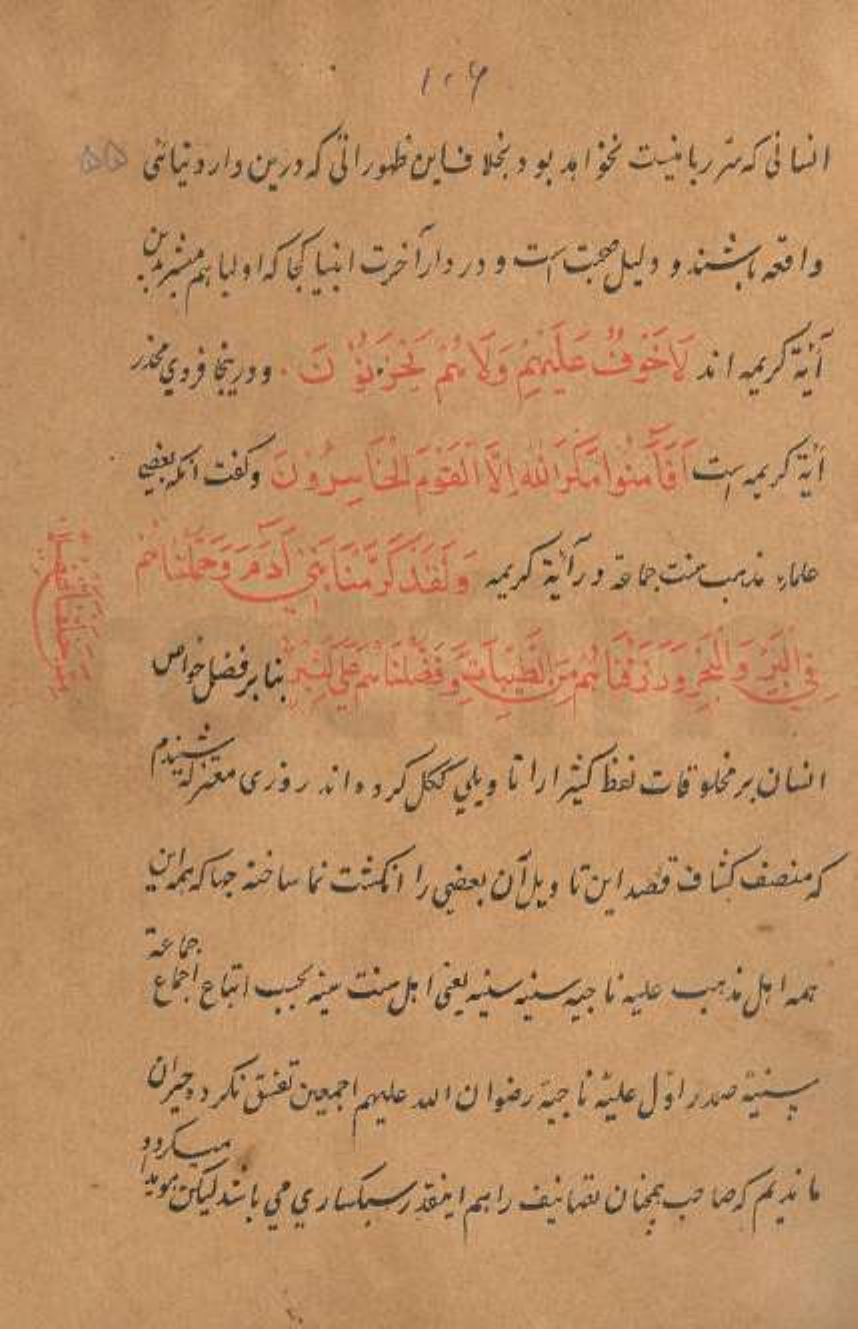 ۱۰۶
۵۵
انسانی که سر ربانیت نخواهد بود بخلاف این ظهوراتی که درین دار دنیائی
واقعه باشند و دلیل صحبت است و در دار آخرت انبیا کجا که اولیا هم مبشرین
آیة کریمه اند لَا خَوْفٌ عَلَيْهِمْ وَلَا هُمْ يَحْزَنُوْنَ . و درینجا فردی محذر
آیة کریمه است اَفَأَمِنُوا مَكْرَ اللهِ اِلَّا الْقَوْمُ الْخَاسِرُوْنَ وکفت انکه بعضی
علماء مذهب سنت جماعة در آیة کریمه وَلَقَدْ كَرَّمْنَا بَنِيْ اٰدَمَ وَحَمَلْنَاهُمْ
فِي الْبَرِّ وَالْبَحْرِ وَرَزَقْنَاهُمْ مِنَ الطَّيِّبَاتِ وَفَضَّلْنَاهُمْ عَلٰي كَثِيْرٍ بنا بر فضل خواص
ممن خلقنا تفضيلا
انسان بر مخلوقات لفظ کثیرا را تا ویلی کل کرده اند روزی معتزله شنیدم
که منصف کشاف قصد این تا ویل آن بعضی را انکشت نما ساخته جها که همه این
همه اهل مذهب علیه ناجیه سنیه سنیه یعنی اهل سنت سنیه بحسب اتباع اجماع جماعة
سنیة صدر اوّل علیّه ناجیّة رضوان الله علیهم اجمعین تفسق نکرده حیران
ماندیم که صاحب همچنان تصانیف را هم اینقدر سبکساری می باشد لیکن میکردد